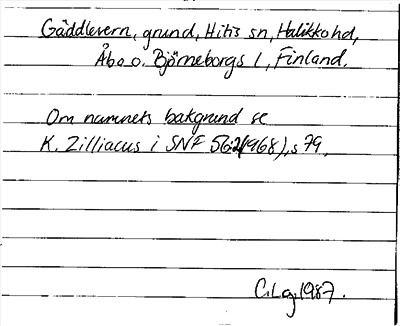 Gäddlevern, grund, Hitis sn, Halikko hd,
Åbo o. Björneborgs l, Finland.
Om namnets bakgrund se
K. Zilliacus i SNF 56:2(1968), s 79.
C. Lg. 1987.